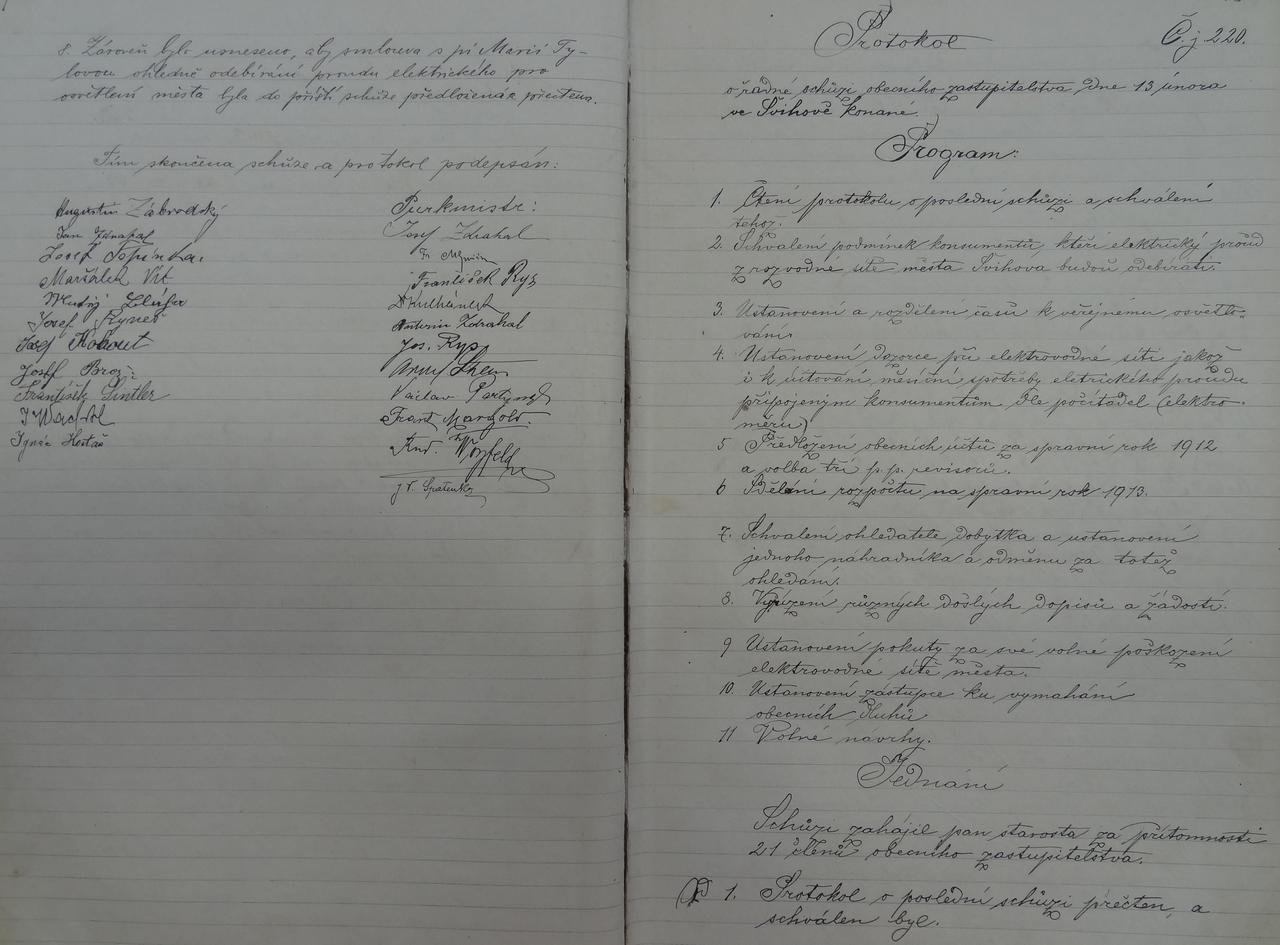 8. Zároveň bylo usneseno, aby smlouva s pí Marií Ty-
lovou ohledně odebírání proudu elektrického pro
osvětlení města byla do příští schůze předložena a přečtena.
Tím skončena schůze a protokol podepsán:
Augustin Zábrodský
Jan Zdrahal
Josef Topinka.
Maršálek Vít
Josef Rynes
Josef Kohout
Josef Broz
František Lintler
Ignác Hostaš
Purkmistr:
Josef Zdrahal
Fr.
František Rys
Kulhánek
Antonín Zdrahal
Jos. Rys
Václav
Frant. Mangold.
Rud.
J. V. Spatenka
Protokol Č.j. 220.
o řádné schůzi obecního zastupitelstva dne 13 února
ve Švihově konané.
Program:
1. Čtení protokolu o poslední schůzi a schválení
téhož.
2. Schválení podmínek konsumentů, kteří elektrický proud
z rozvodné sítě města Švihova budou odebírati.
3. Ustanovení a rozdělení časů k veřejnému osvětlo-
vání.
4. Ustanovení dozorce při elektrovodné síti jakož
i k účtování měsíční spotřeby eletrického proudu
připojeným konsumentům dle počítadel (elektro-
měrů)
5 Předložení obecních účtů za správní rok 1912
a volba tří p.p. revisorů.
6 Sdělání rozpočtu na správní rok 1913.
7. Schválení ohledatele dobytka a ustanovení
jednoho náhradníka a odměnu za totéž
ohledání.
8. Vyřízení různých došlých dopisů a žádostí.
9 Ustanovení pokuty za své volné poškození
elektrovodné sítě města.
10. Ustanovení zástupce ku vymáhání
obecních dluhů
11 Volné návrhy.
Jednání
Schůzi zahájil pan starosta za přítomnosti
21 členů obecního zastupitelstva.
1. Protokol o poslední schůzi přečten, a
schválen byl.